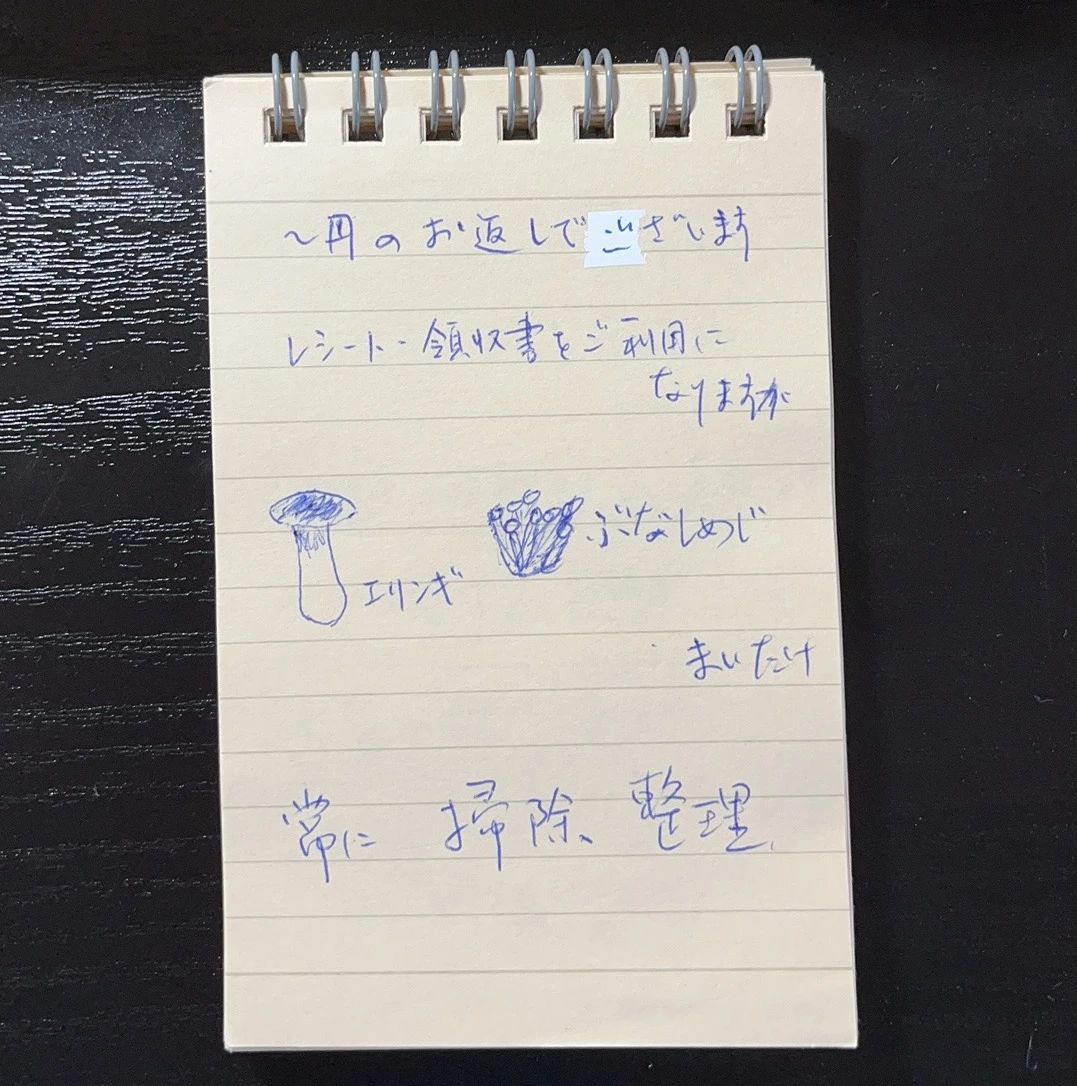 〜円のお返しでございます
レシート・領収書をご利用に
なりますか
エリンギ
ぶなしめじ
まいたけ
常に 掃除、整理、